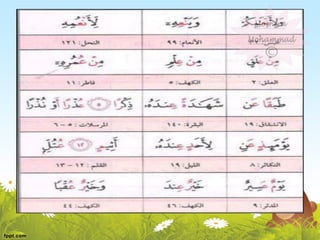 وَيَنْعِهِۦٓ
لِأَنْعُمِهِ
الأنعام: ٩٩
النحل: ١٢١
Mohammad
©
مِنْ عِلْمٍ
مِنْ عُمُرِهِۦٓ
العلق: ٢
الكهف: ٥
فاطر: ١١
طَبَقًا عَن
شَهَـٰدَةً عِندَهُۥ
ذِكْرًا ٥ عُذْرًا أَوْ نُذْرًا
الانشقاق: ١٩
البقرة: ١٤٠
المرسلات: ٥ - ٦
يَوْمَئِذٍ عَنِ
لِأَحَدٍ عِندَهُۥ
أَثِيمٍ ١٢ عُتُلٍّ
التكاثر: ٨
الليل: ١٩
القلم: ١٢ - ١٣
يَوْمٌ عَسِيرٌ
خَيْرٌ عِندَ
وَخَيْرٌ عُقْبًا
المدثر: ٩
الكهف: ٤٦
الكهف: ٤٤
fppt.com